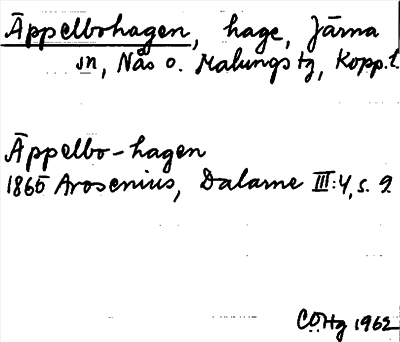 Äppelbohagen, hage, Järna
sn, Nås o. Malungs tg, Kopp. l.
Äppelbo-hagen
1865 Arosenius, Dalarne III:4, s. 9
COHg 1962